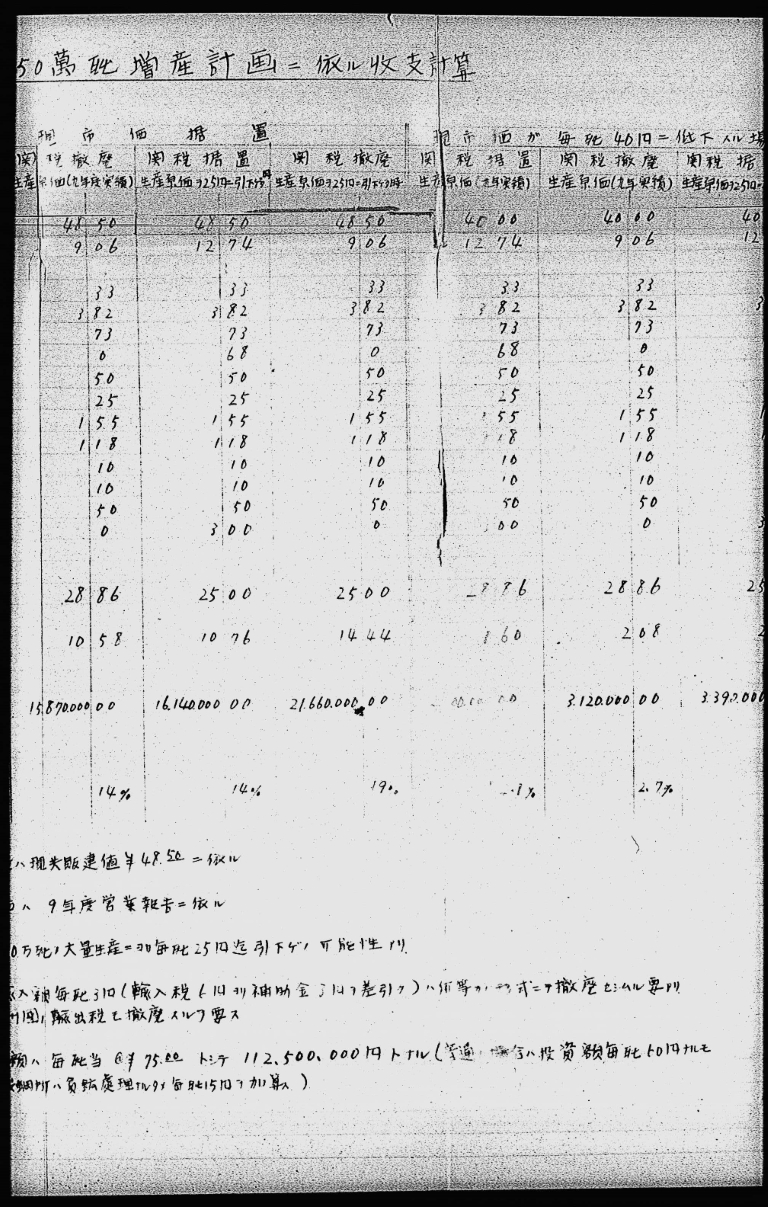 50萬瓲増産計画ニ依ル收支計算
現市価据置 現市価ガ每瓲40円ニ低下スル場
関税撤廃 関税据置 関税撤廃 関税据置 関税撤廃 関税据
生産原価(九年度実績) 生産原価ヲ25円ニ引下ゲタ時 生産原価ヲ25円ニ引下ゲタ時 生産原価(九年実績) 生産原価(九年実績) 生産原価ヲ25円ニ
48 50 48 50 48 50 40 00 40 00 40
9 06 12 74 9 06 12 74 9 06 12
33 33 33 33 33
3 82 3 82 3 82 3 82 3 82 3
73 73 73 73 73
0 68 0 68 0
50 50 50 50 50
25 25 25 25 25
1 55 1 55 1 55 1 55 1 55 1
1 18 1 18 1 18 18 1 18
10 10 10 10 10
10 10 10 10 10
50 50 50 50 50
0 3 00 0 00 0 3
28 86 25 00 25 00 86 28 86 25
10 58 10 76 14 44 1 60 2 08 2
15,870,000 00 16,140,000 00 21,660,000 00 00 3,120,000 00 3,390,000
14% 14% 19% % 2.7%
ハ現共販建値¥48.50ニ依ル
ハ 9年度営業報告ニ依ル
0万瓲ノ大量生産ニヨリ每瓲25円迄引下ゲノ可能性アリ
入税每瓲3円(輸入税6円ヨリ補助金3円ヲ差引ク)ハ何等カノ方式ニテ撤廃セシムル要アリ
輸出税モ撤廃スルヲ要ス
額ハ每瓲当@¥75.00トシテ112,500,000円トナル(普通ハ投資額每瓲60円ナルモ
ハ負債處理ノタメ每瓲15円ヲ加算ス)